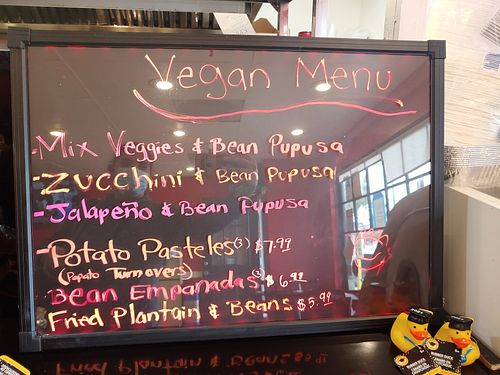 Vegan Menu
-Mix Veggies & Bean Pupusa
-Zucchini & Bean Pupusa
-Jalapeño & Bean Pupusa
-Potato Pasteles(3) $7.99
(Papato Turnovers)
Bean Empanadas(3) $6.99
Fried Plantain & Beans $5.99